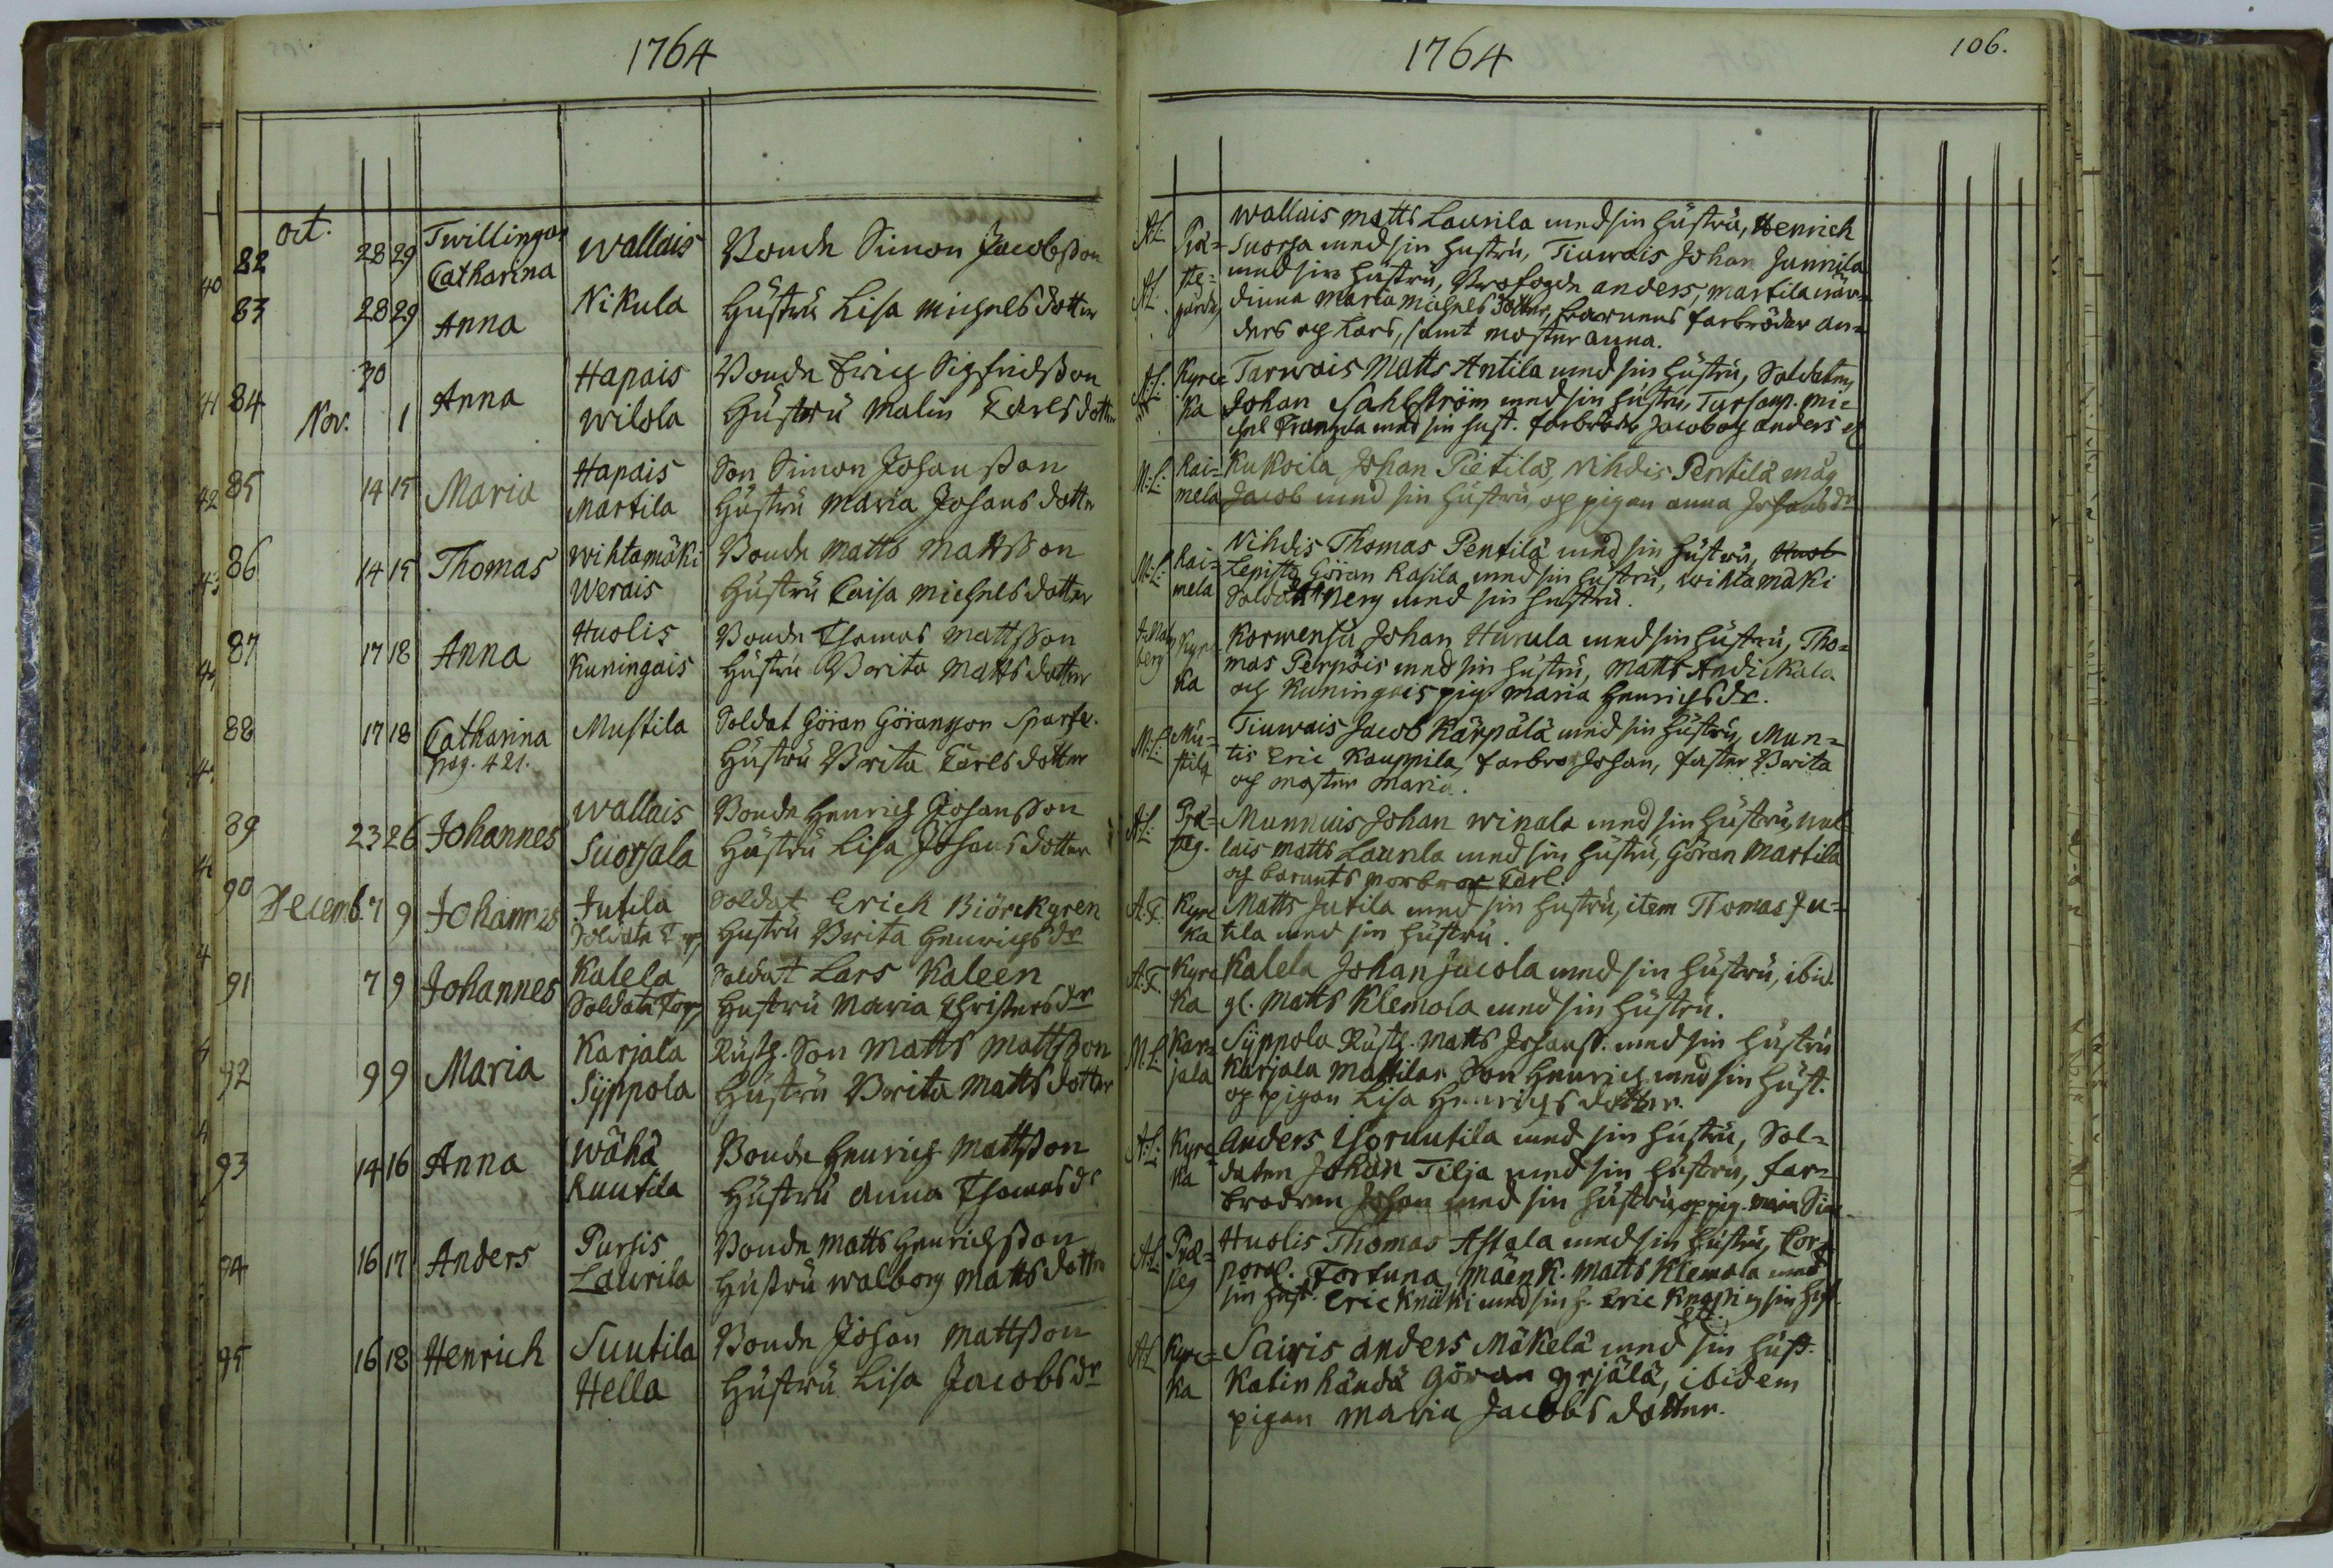 1764
oct.
82 28 29 Twillingar Catharina
wallais
Bonde Simon Jacobsson
83 28 29 Anna
Nikula
Hustru Lisa Michelsdotter
84 30
Nov. 1
Anna
Hapais
wilola
Bonde Eric Sigfridsson
Hustru Malin Carlsdotter
85 14 15 Maria
Hapais
Martila
Son Simon Johansson
Hustru Maria Johansdotter
86 14 15 Thomas
wihtamäki
Werais
Bonde Matts Mattsson
Hustru Caisa Michelsdotter
87 17 18 Anna
Huolis
Kuningais
Bonde Thomas Mattsson
Hustru Brita Mattsdotter
88 17 18 Catharina
pag. 421.
Mustila
Soldat Göran Göransson
Hustru Brita Carlsdotter
89 23 26 Johannes
wallais
Suorsala
Bonde Henrich Johansson
Hustru Lisa Johansdotter
90 Decemb. 7 9 Johannes
Jutila
Soldate Torp
Soldat Erich Biörckgren
Hustru Brita Henrichsdr
91 7 9 Johannes
Kalela
Soldate Torp
Soldat Lars Kaleen
Hustru Maria Christersdr
92 9 9 Maria
Karjala
Syppola
Rusth. Son Matts Mattsson
Hustru Brita Mattsdotter
93 14 16 Anna
wähä
Ruutila
Bonde Henrich Mattsson
Hustru Anna Thomasdr
94 16 17 Anders
Pursis
Laurila
Bonde Matts Henrichsson
Hustru walborg Mattsdotter
95 16 18 Henrich
Suutila
Hella
Bonde Johan Mattsson
Hustru Lisa Jacobsdr
1764
106.
A:L: Präste=gården
wallais Matts Laurila med sin Hustru, Henrich
Suorsa med sin hustru, Tiuwais Johan Junnila
med sin hustru, Brofogde anders, martila
Maria Michelsdotter, barnens farbröder an=
ders och Lars, samt moster anna.
A:L: Kyrc ka
Tarwais Matts Antila med sin hustru, Soldaten
Johan Sahlström med sin hustru, Mic
hel med sin hust. farbröder Jacob och anders
M:L: Rai=mela
Kukoila Johan Pietilä, Nihdis Pentilä måg
Jacob med sin hustru, och pigan anna Johansdr
M:L: Rai=mela
Nihdis Thomas Pentilä med sin hustru,
Lepistö Göran Rasila med sin hustru, wihtamäki
Soldat Berg med sin hustru.
Kyrc ka
Korwensu Johan Hurula med sin hustru, Tho=
mas Perpöis med sin hustru, Matts Andickala
och Kuningais pig. Maria Henrichsdr.
M:L: Mu=stila
Tiuwais Jacob Kärpälä med sin hustru, Mun=
tis Eric Kauppila, farbror Johan, faster Brita
och moster Maria.
A:L: Präsieg.
Munnuis Johan winala med sin hustru, wal
lais Matts Laurila med sin hustru, Göran Martila
och barnets morbror Carl.
A:F: Kyrc ka
Matts Jutila med sin hustru, item Thomas Ju=
tila med sin hustru.
A:F: Kyrc ka
Kalela Johan Jacola med sin hustru, ibid.
gl. Matts Klemola med sin hustru.
M:L: Kar=jala
Syppola Rusth. Matts Johanss. med sin hustru
Karjala Mattilas Son Henrich med sin hust.
och pigan Lisa Henrichsdotter.
A:L: Kyrc ka
Anders Isoruutila med sin hustru, Sol=
daten Johan Tilja med sin hustru, far=
brodren Johan med sin hustru och pig. Maria
A:L: Präsieg
Huolis Thomas Astala med sin hustru, Cor=
poral. Fortuna, Matts Klemola med
sin hust. Eric Knuki med sin h. Eric sin hust.
A:L: Kyrc=ka
Sairis anders Mäkelä med sin hust.
Katinhändä Göran Yrjälä, ibidem
pigan Maria Jacobs dotter.